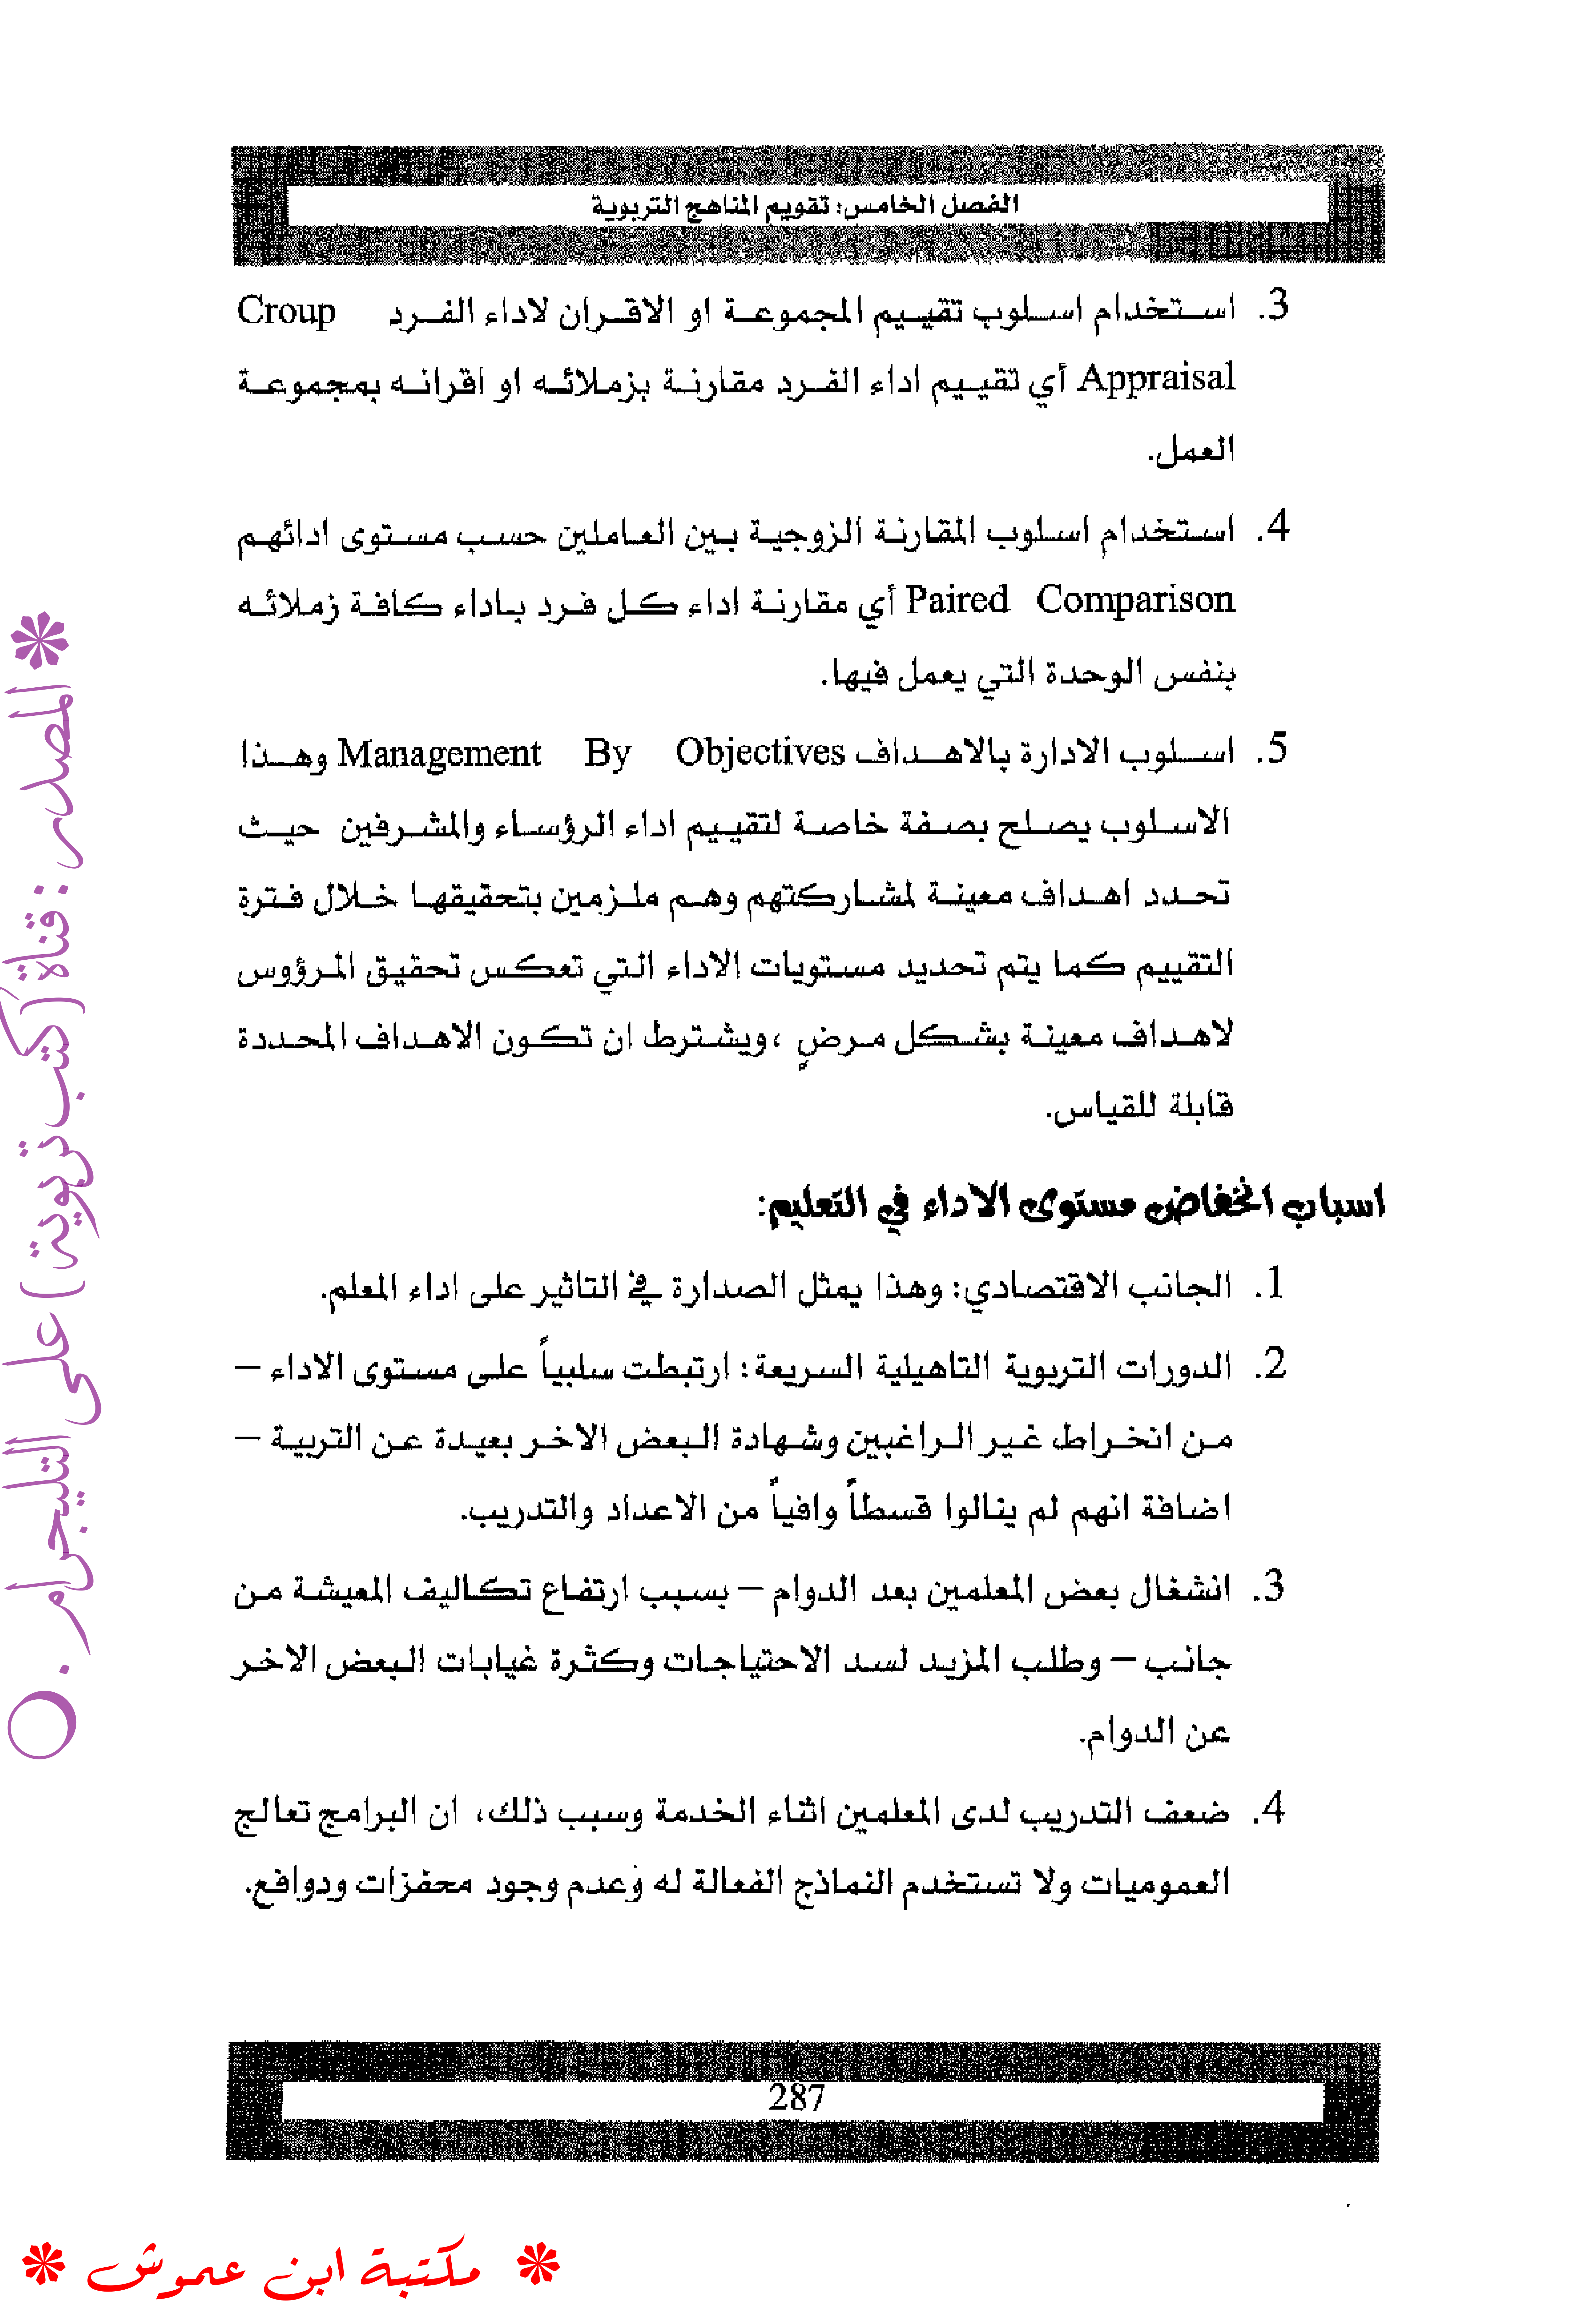 الفصل الخامس: تقويم المناهج التربوية
3. استخدام اسلوب تقييم المجموعة او الاقران لاداء الفرد Croup
Appraisal أي تقييم اداء الفرد مقارنة بزملائه او اقرانه بمجموعة
العمل.
4. استخدام اسلوب المقارنة الزوجية بين العاملين حسب مستوى ادائهم
Paired Comparison أي مقارنة اداء كل فرد باداء كافة زملائه
بنفس الوحدة التي يعمل فيها.
5. اسلوب الادارة بالاهداف Management By Objectives وهذا
الاسلوب يصلح بصفة خاصة لتقييم اداء الرؤساء والمشرفين حيث
تحدد اهداف معينة لمشاركتهم وهم ملزمين بتحقيقها خلال فترة
التقييم كما يتم تحديد مستويات الاداء التي تعكس تحقيق المرؤوس
لاهداف معينة بشكل مرضٍ ،ويشترط ان تكون الاهداف المحددة
قابلة للقياس.
اسباب انخفاض مستوى الاداء في التعليم:
1. الجانب الاقتصادي: وهذا يمثل الصدارة في التاثير على اداء المعلم.
2. الدورات التربوية التاهيلية السريعة: ارتبطت سلبياً على مستوى الاداء –
من انخراط غير الراغبين وشهادة البعض الاخر بعيدة عن التربية –
اضافة انهم لم ينالوا قسطاً وافياً من الاعداد والتدريب.
3. انشغال بعض المعلمين بعد الدوام – بسبب ارتفاع تكاليف المعيشة من
جانب – وطلب المزيد لسد الاحتياجات وكثرة غيابات البعض الاخر
عن الدوام.
4. ضعف التدريب لدى المعلمين اثناء الخدمة وسبب ذلك، ان البرامج تعالج
العموميات ولا تستخدم النماذج الفعالة له وعدم وجود محفزات ودوافع.
287
المصدر : قناة ( كتب تربوية ) على التليجرام .
مكتبة ابن عموش